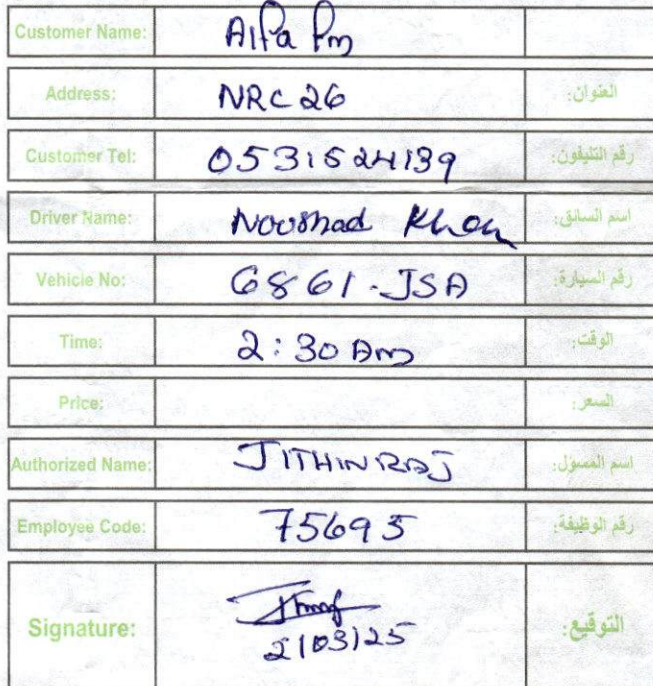 Customer Name: Alfa Pm
Address: NRC 26 العنوان:
Customer Tel: 0531524139 رقم التليفون:
Driver Name: Nooshad Khan اسم السائق:
Vehicle No: 6861-JSA رقم السيارة:
Time: 2:30 Am الوقت:
Price: السعر:
Authorized Name: JITHINRAJ اسم المسؤل:
Employee Code: 75695 رقم الوظيفة:
Signature: التوقيع:
2/03/25